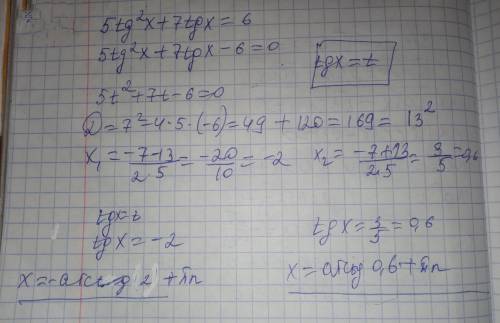 5tg²x+7tgx=6
5tg²x+7tgx-6=0
tgx=t
5t²+7t-6=0
D=7²-4·5·(-6)=49+120=169=13²
x₁=-7-13/2·5=-20/10=-2 x₂=-7+13/2·5=3/5=0,6
tgx=t
tgx=-2 tgx=3/5=0,6
x=-arctg(2)+πn x=arctg 0,6+πn